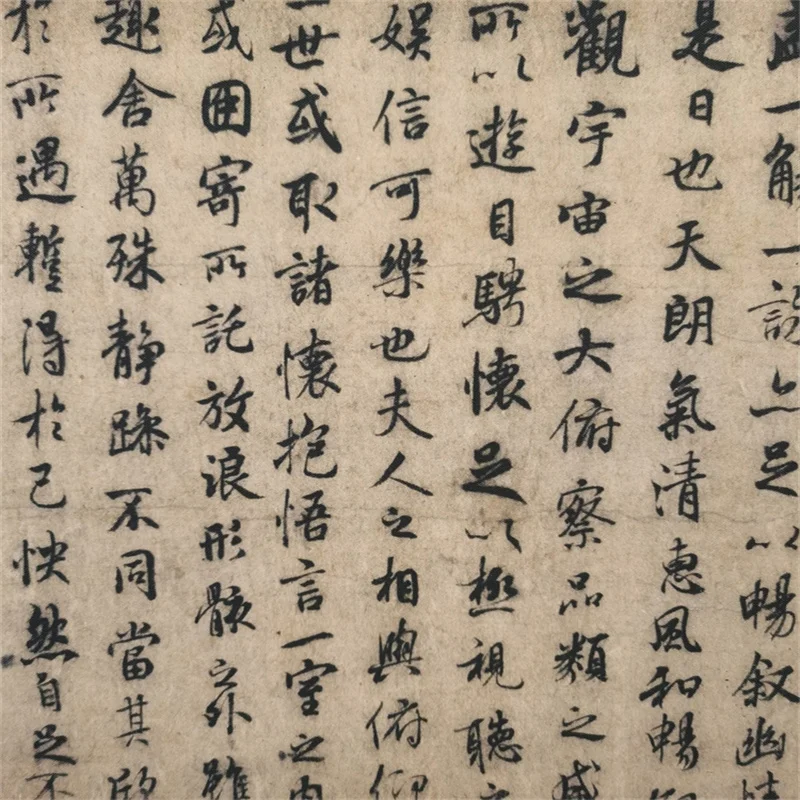 一觴一詠亦足以暢叙幽情
是日也天朗氣清惠風和暢仰
觀宇宙之大俯察品類之盛
所以遊目騁懷足以極視聽之
娱信可樂也夫人之相與俯仰
一世或取諸懷抱悟言一室之內
或因寄所託放浪形骸之外雖
趣舍萬殊静躁不同當其欣
於所遇蹔得於己怏然自足不